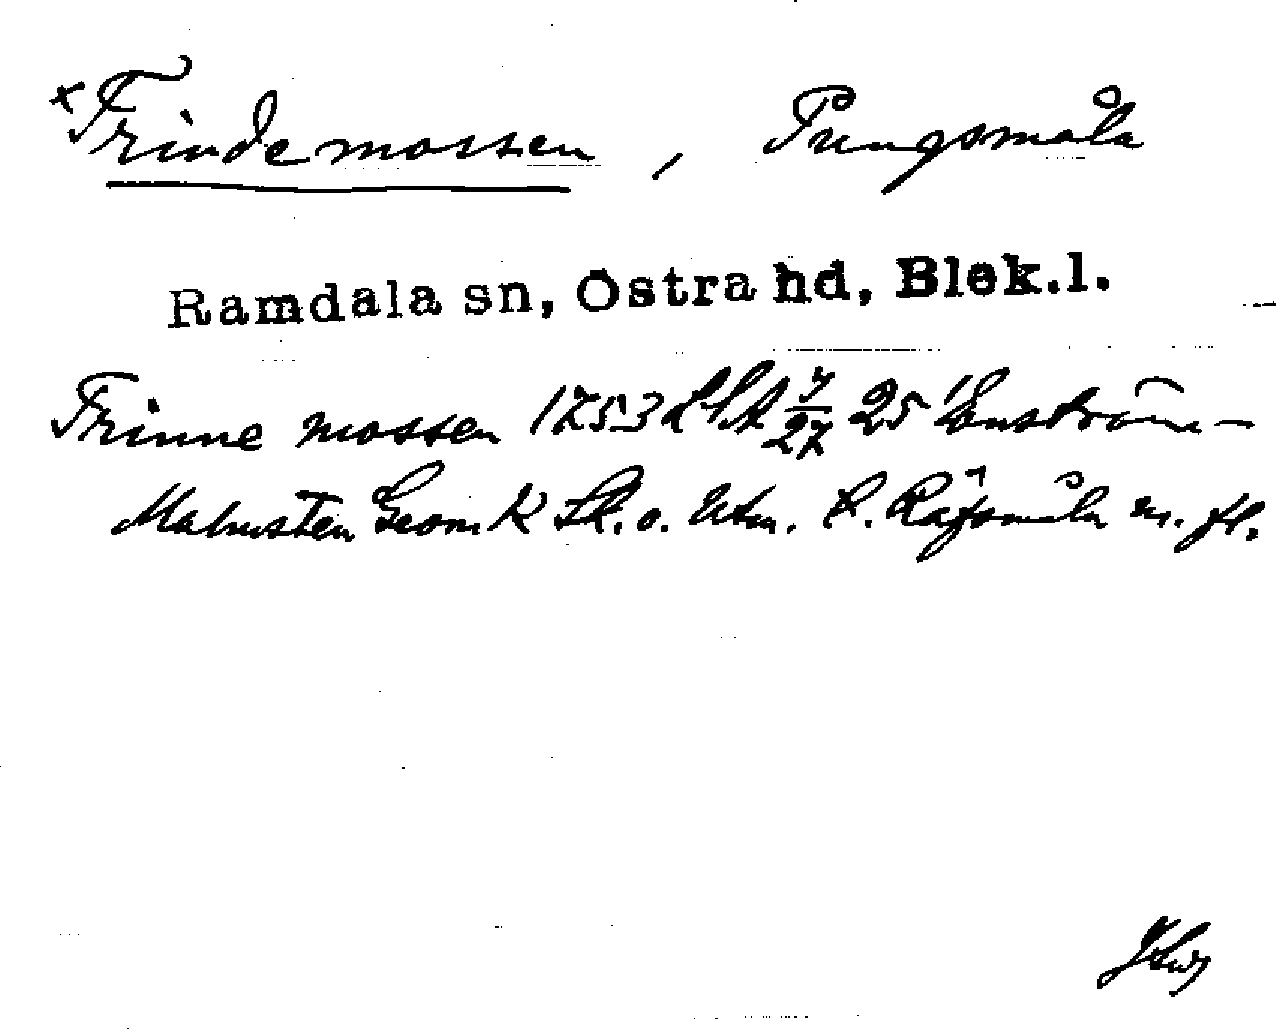 ×Trindemossen, Pungsmåla
Ramdala sn, Östra hd, Blek.l.
Trinne mossen 1753 LSA 4/27 25 Enström-
Malmsten Geom K Sk. o. Utm. t. Räfsmåla m. fl.